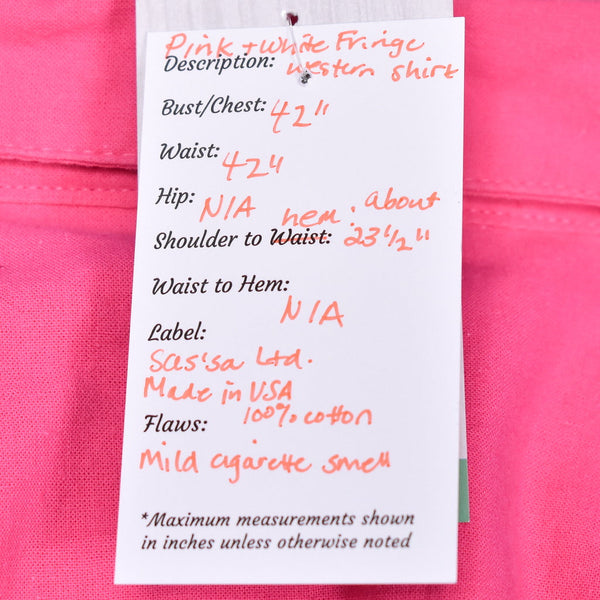 Pink + white Fringe
Description: western shirt
Bust/Chest: 42"
Waist: 42"
Hip: N/A
hem: about
Shoulder to Waist: 23 1/2"
Waist to Hem:
N/A
Label:
Sas'sa Ltd.
Made in USA
100% cotton
Flaws:
Mild cigarette smell
*Maximum measurements shown
in inches unless otherwise noted